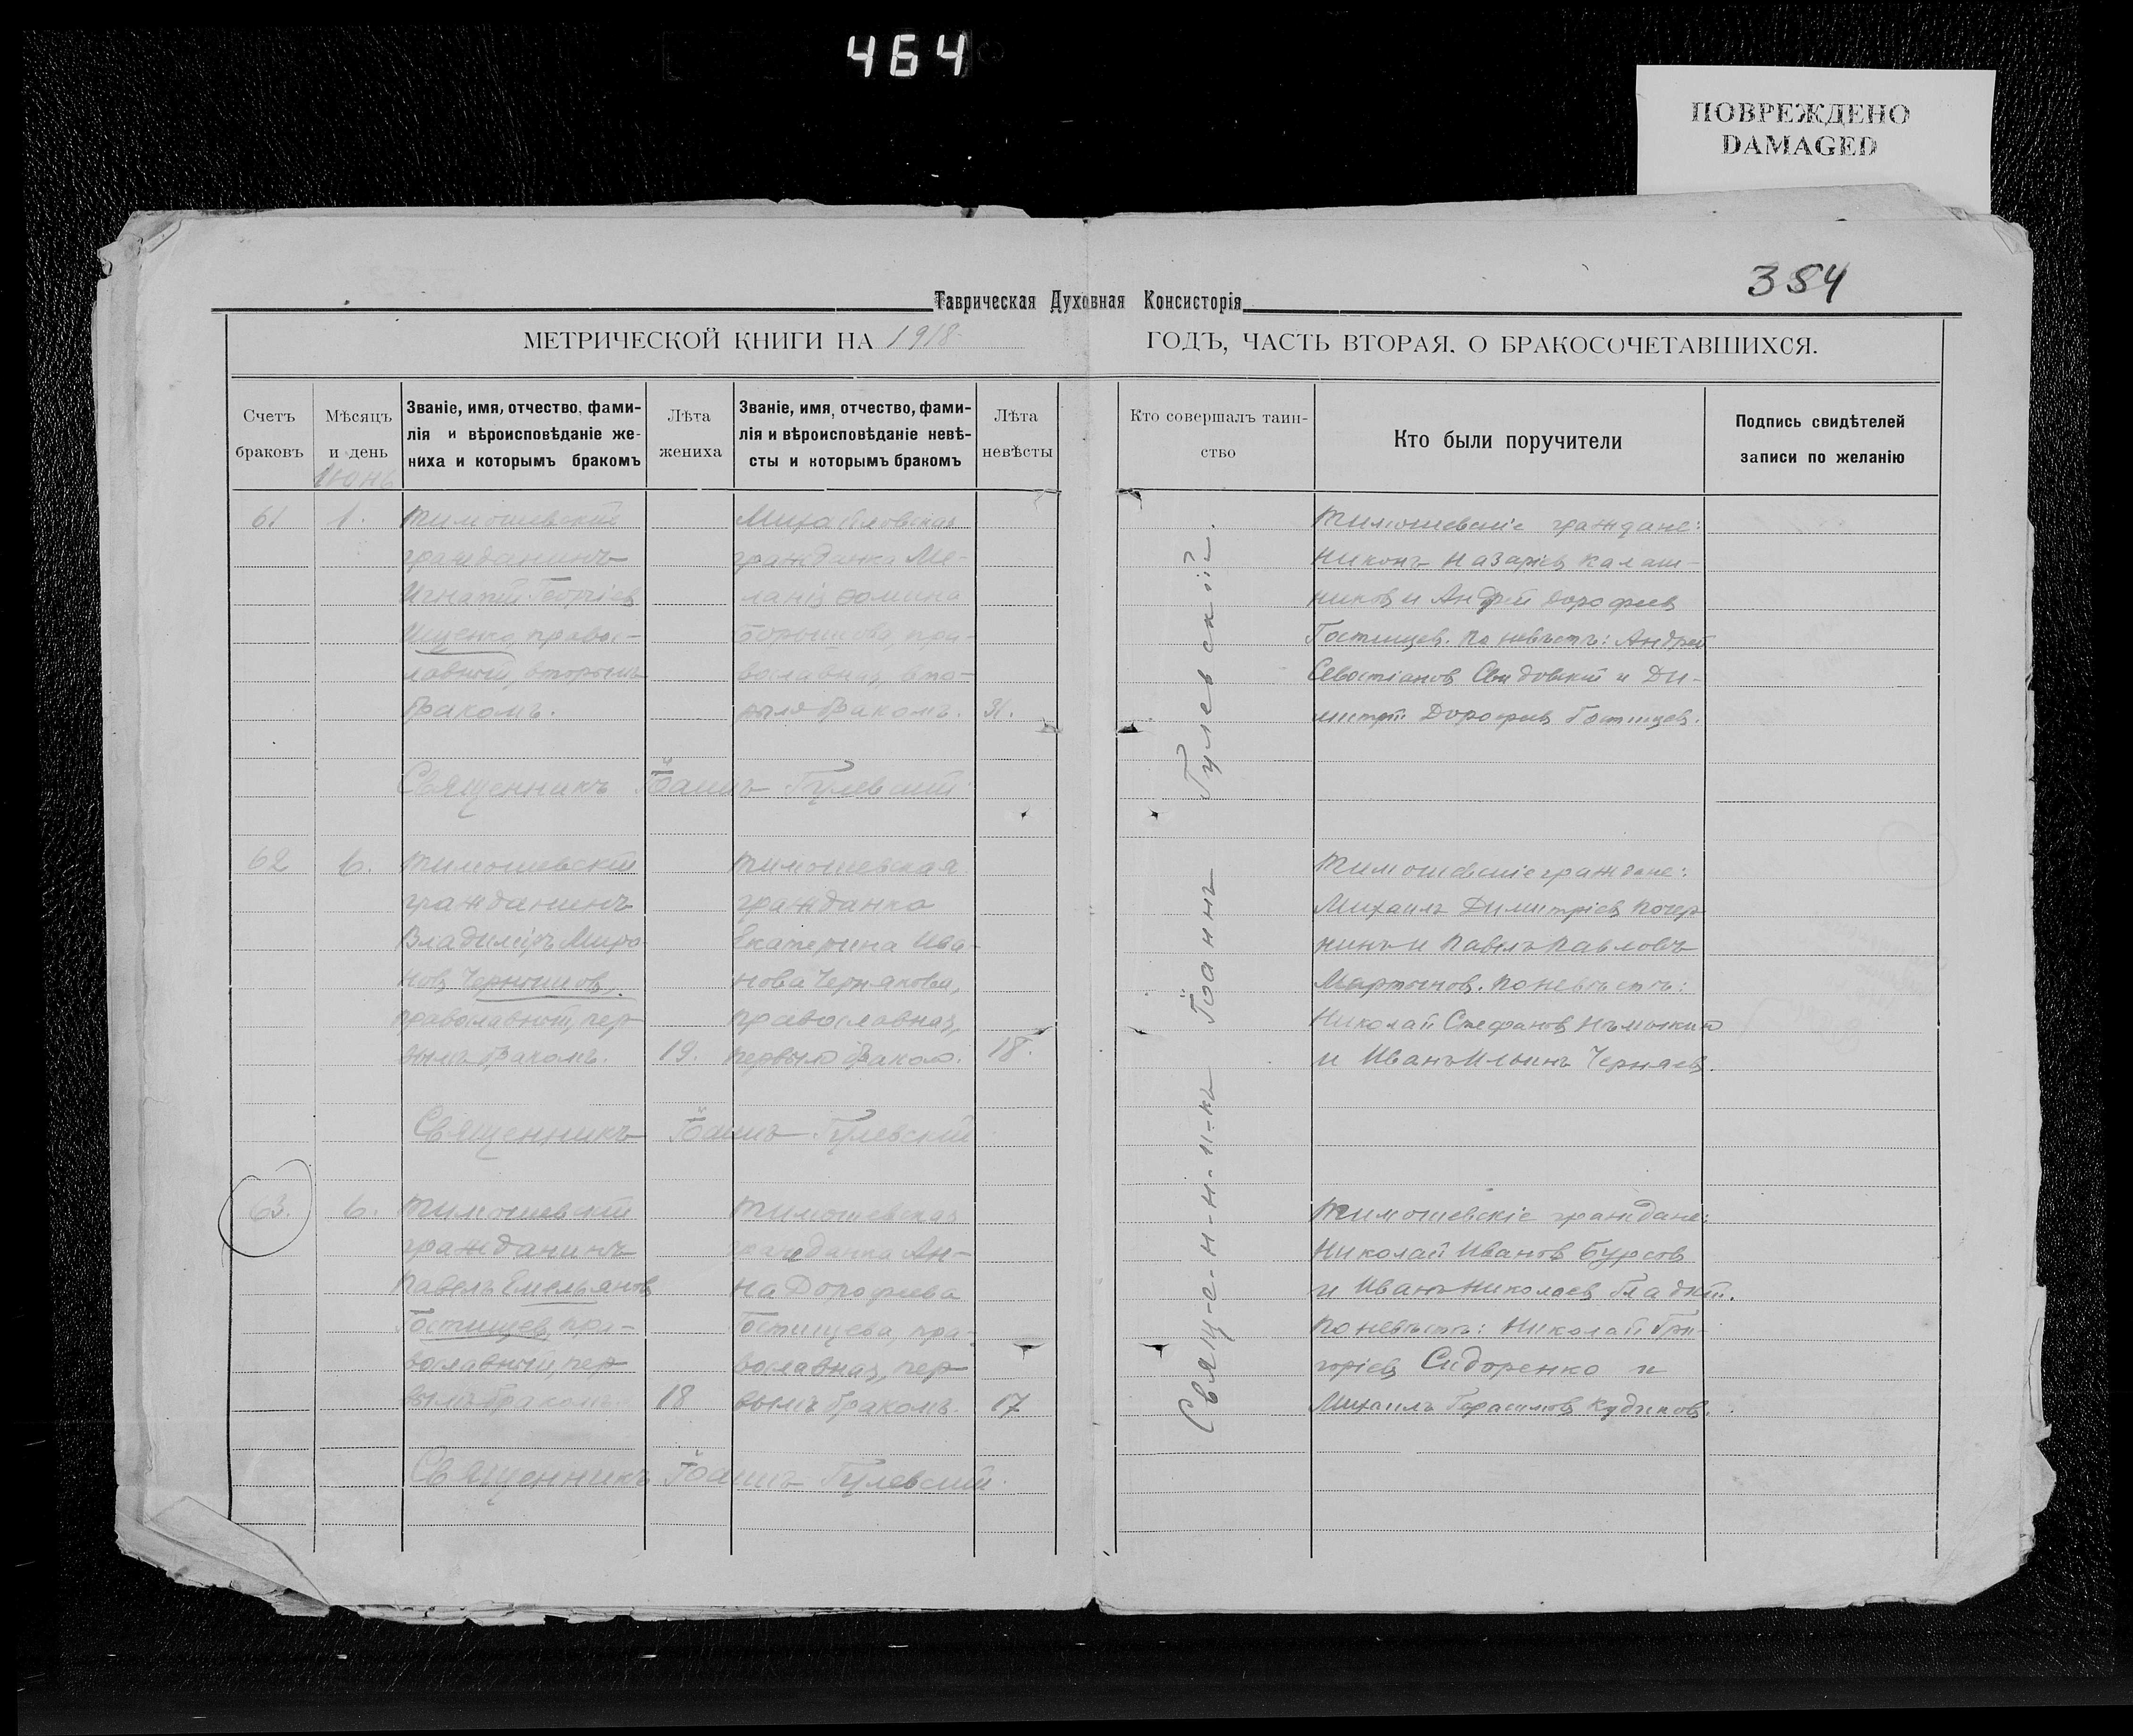 464
ПОВРЕЖДЕНО
DAMAGED
384
Таврическая Духовная Консисторія
МЕТРИЧЕСКОЙ КНИГИ НА 1918 ГОДЪ, ЧАСТЬ ВТОРАЯ, О БРАКОСОЧЕТАВШИХСЯ.
Счетъ браковъ
Мѣсяцъ и день
Званіе, имя, отчество, фами-
лія и вѣроисповѣданіе же-
ниха и которымъ бракомъ
Лѣта жениха
Званіе, имя, отчество, фами-
лія и вѣроисповѣданіе невѣ-
сты и которымъ бракомъ
Лѣта невѣсты
Кто совершалъ таин-
ство
Кто были поручители
Подпись свидѣтелей
записи по желанію
Июнь
61
1.
Тимошевскій
гражданинъ
Игнатій Георгіев
Ищенко, правос-
лавный, вторымъ
бракомъ.
Михайловская
гражданка Ме-
ланія Фомина
православная, вто-
рымъ бракомъ.
31.
Тимошевскіе граждане:
Никонъ Назаріев Калаш-
ников и Андрей Дорофеев
Гостищев. По невѣстѣ: Андрей
Севастіанов и Ди-
митрій Дорофеев Гостищев.
Священникъ Іоаннъ Гулевскій
62
6.
Тимошевскій
гражданинъ
Владиміръ Миро-
нов
православный, пер-
вымъ бракомъ.
19.
Тимошевская
гражданка
Екатерина Ива-
нова
православная,
первымъ бракомъ.
18.
Тимошевскіе граждане:
Михаилъ Димитріев
и Павелъ Павловъ
Мартынов. По невѣстѣ:
Николай Стефанов
и Иванъ Ильинъ Черняев.
Священникъ Іоаннъ Гулевскій
63.
6.
Тимошевскій
гражданинъ
Павелъ Емельянов
Гостищев, пра-
вославный, пер-
вымъ бракомъ.
18
Тимошевская
гражданка Ан-
на Дорофеева
Гостищева, пра-
вославная, пер-
вымъ бракомъ.
17
Тимошевскіе граждане:
Николай Иванов Бурсов
и Иванъ Николаев Гладкій.
По невѣстѣ: Николай Гри-
горіев Сидоренко и
Михаилъ Герасимов Кудинов.
Священникъ Іоаннъ Гулевскій.
Свящ-е-н-н-и-къ Іоаннъ Гулевскій.